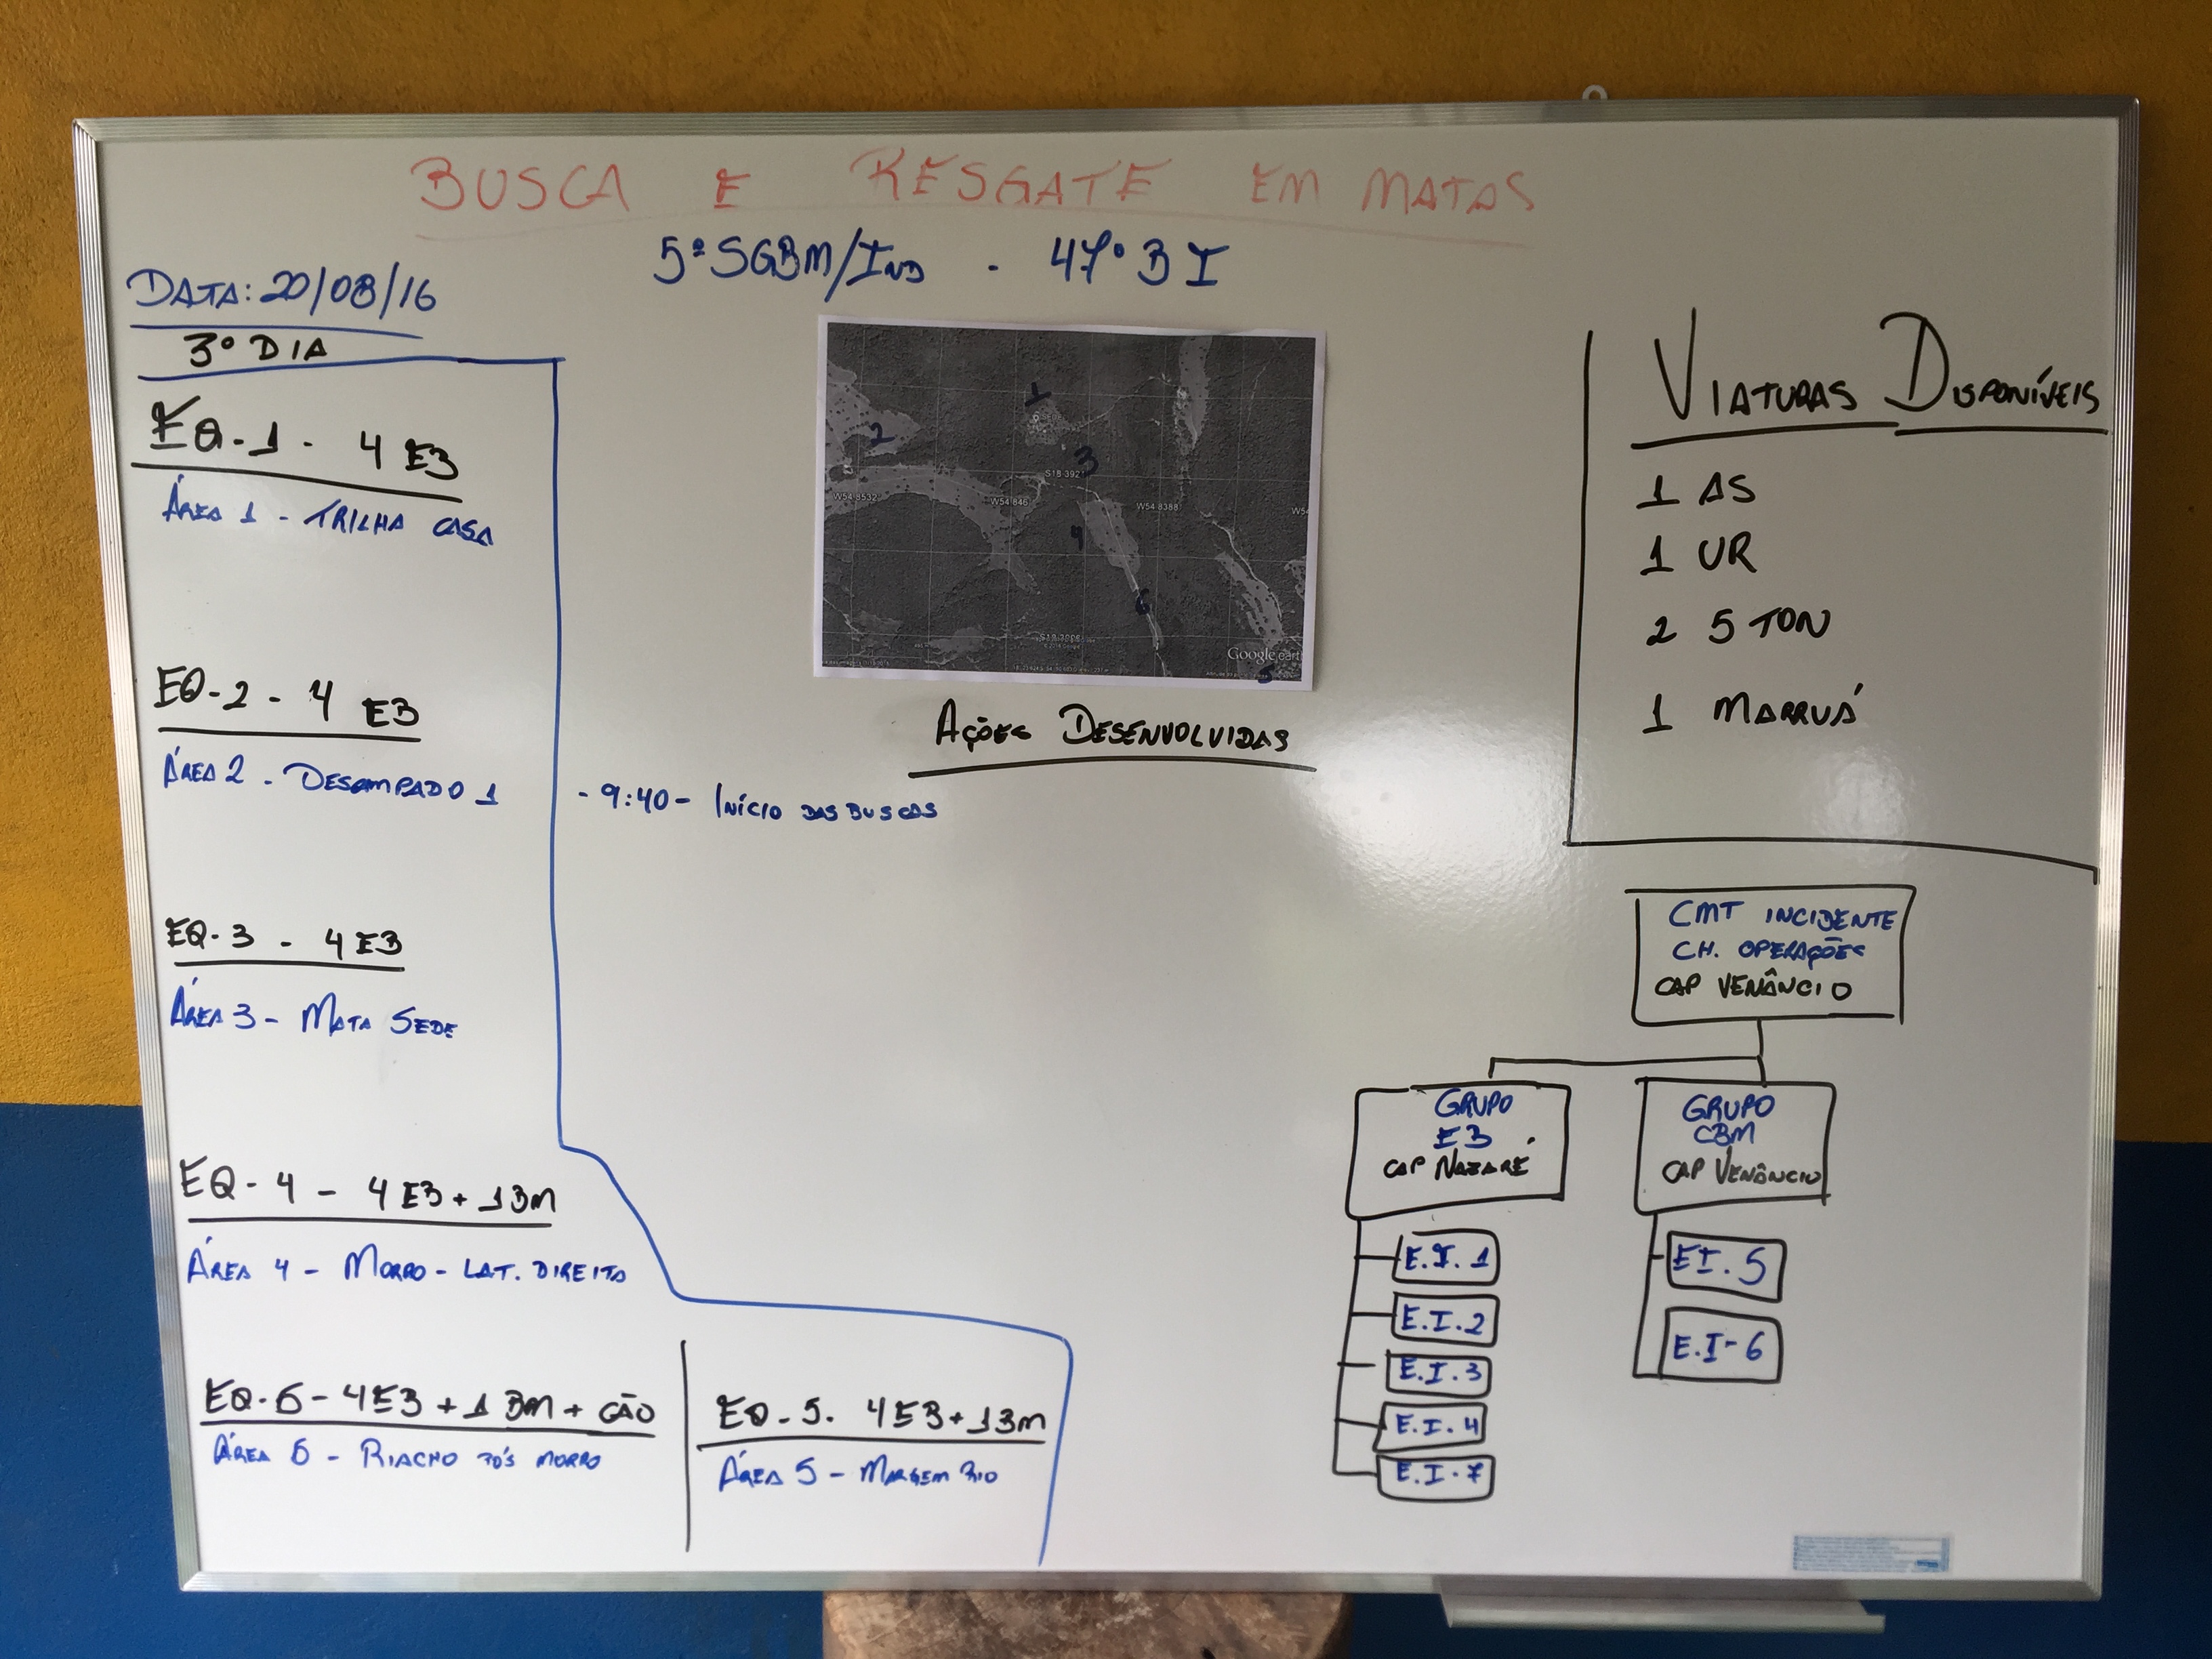 BUSCA E RESGATE EM MATAS
5º SGBM/IND - 47º BI
DATA: 20/08/16
3º DIA
EQ-1 - 4 EB
ÁREA 1 - TRILHA CASA
EQ-2 - 4 EB
ÁREA 2 - DESCAMPADO 1
EQ-3 - 4 EB
ÁREA 3 - MATA SEDE
EQ-4 - 4 EB + 1 BM
ÁREA 4 - MORRO - LAT. DIREITA
EQ-6 - 4 EB + 1 BM + CÃO
ÁREA 6 - RIACHO PÓS MORRO
EQ-5 - 4 EB + 1 BM
ÁREA 5 - MARGEM RIO
1
2
3
S18 392
W54 8532
W54 846
W54 8388
W54
4
6
Google earth
5
AÇÕES DESENVOLVIDAS
- 9:40 - INÍCIO DAS BUSCAS
VIATURAS DISPONÍVEIS
1 AS
1 UR
2 5 TON
1 MARRUÁ
CMT INCIDENTE
CH. OPERAÇÕES
CAP VENÂNCIO
GRUPO
EB
CAP NAZARÉ
E.I. 1
E.I. 2
E.I. 3
E.I. 4
E.I. 7
GRUPO
CBM
CAP VENÂNCIO
EI. 5
E.I-6